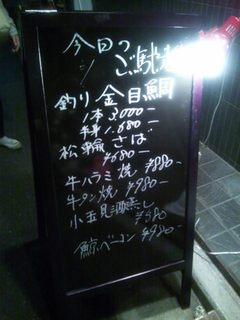 今日の
ご馳走
釣り金目鯛
1本 3,000-
半身 1,680-
松輪さば
¥680-
牛ハラミ焼 ¥880-
牛タン焼 ¥980-
小玉貝酒蒸し
¥580
鯨ベーコン ¥980-